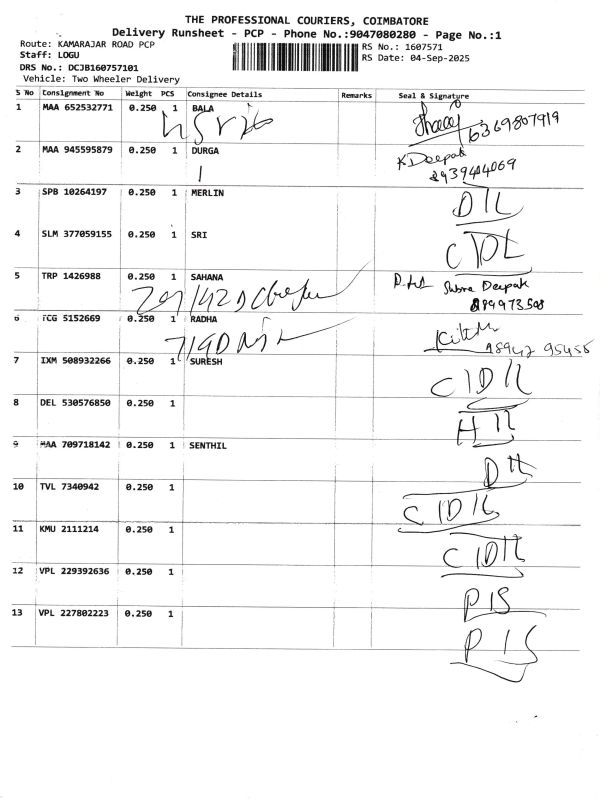 THE PROFESSIONAL COURIERS, COIMBATORE
Delivery Runsheet - PCP - Phone No.:9047080280 - Page No.:1
Route: KAMARAJAR ROAD PCP
RS No.: 1607571
Staff: LOGU
RS Date: 04-Sep-2025
DRS No.: DCJB160757101
Vehicle: Two Wheeler Delivery
S No Consignment No Weight PCS Consignee Details Remarks Seal & Signature
1 MAA 652532771 0.250 1 BALA
6369807919
2 MAA 945595879 0.250 1 DURGA
K Deepak
8939404069
3 SPB 10264197 0.250 1 MERLIN
D1L
4 SLM 377059155 0.250 1 SRI
5 TRP 1426988 0.250 1 SAHANA
Deepak
6 TCG 5152669 0.250 1 RADHA
95455
7 IXM 508932266 0.250 1 SURESH
C1D1L
8 DEL 530576850 0.250 1
9 MAA 709718142 0.250 1 SENTHIL
10 TVL 7340942 0.250 1
C1D1L
11 KMU 2111214 0.250 1
C1D1L
12 VPL 229392636 0.250 1
P1S
13 VPL 227802223 0.250 1
P1S